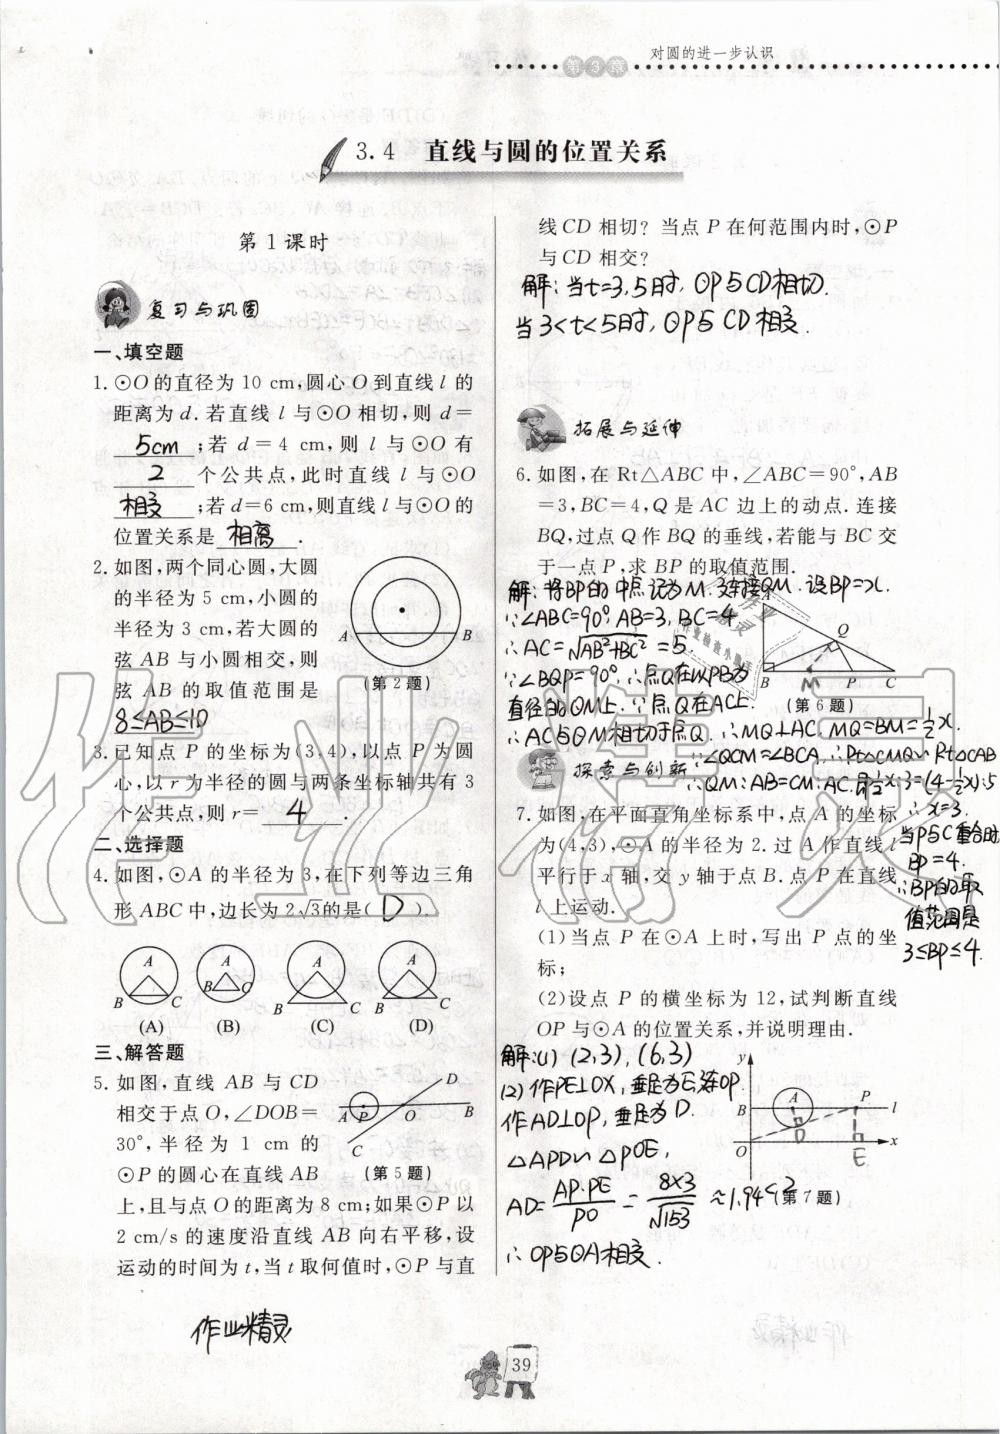 第3章
对圆的进一步认识
3.4 直线与圆的位置关系
第1课时
复习与巩固
一、填空题
1. ⊙O的直径为10 cm,圆心O到直线l的
距离为d.若直线l与⊙O相切,则d=
5cm;若d=4 cm,则l与⊙O有
2个公共点,此时直线l与⊙O
相交;若d=6 cm,则直线l与⊙O的
位置关系是 相离.
2. 如图,两个同心圆,大圆
的半径为5 cm,小圆的
半径为3 cm,若大圆的
弦AB与小圆相交,则
弦AB的取值范围是
8≤AB≤10
A B
(第2题)
3. 已知点P的坐标为(3,4),以点P为圆
心,以r为半径的圆与两条坐标轴共有3
个公共点,则r= 4.
二、选择题
4. 如图,⊙A的半径为3,在下列等边三角
形ABC中,边长为2√3的是( D ).
A B C
(A)
A B C
(B)
A B C
(C)
A B C
(D)
三、解答题
5. 如图,直线AB与CD
相交于点O,∠DOB=
30°,半径为1 cm的
⊙P的圆心在直线AB
A P O D B C
(第5题)
上,且与点O的距离为8 cm;如果⊙P以
2 cm/s的速度沿直线AB向右平移,设
运动的时间为t,当t取何值时,⊙P与直
线CD相切?当点P在何范围内时,⊙P
与CD相交?
解:当t=3,5时,⊙P与CD相切.
当3<t<5时,⊙P与CD相交.
拓展与延伸
6. 如图,在Rt△ABC中,∠ABC=90°,AB
=3,BC=4,Q是AC边上的动点.连接
BQ,过点Q作BQ的垂线,若能与BC交
于一点P,求BP的取值范围.
解:将BP的中点记为M.连接QM.设BP=x.
∵∠ABC=90°,AB=3,BC=4
∴AC=√AB²+BC²=5.
∵∠BQP=90°,∴点Q在以PB为
直径的⊙M上.∵点Q在AC上.
∴AC与⊙M相切于点Q.∴MQ⊥AC.MQ=BM=1/2x.
∵∠QCM=∠BCA,∴Rt△CMQ∽Rt△CAB
∴QM:AB=CM:AC.即1/2x:3=(4-1/2x):5
∴x=3.
当P与C重合时
BP=4.
∴BP的取
值范围是
3≤BP≤4.
A Q B M P C
(第6题)
探索与创新
7. 如图,在平面直角坐标系中,点A的坐标
为(4,3),⊙A的半径为2.过A作直线l
平行于x轴,交y轴于点B.点P在直线
l上运动.
(1)当点P在⊙A上时,写出P点的坐
标;
(2)设点P的横坐标为12,试判断直线
OP与⊙A的位置关系,并说明理由.
解:(1) (2,3),(6,3)
(2)作PE⊥OX,垂足为E,连OP.
作AD⊥OP,垂足为D.
△APD∽△POE,
AD=AP·PE/PO=8×3/√153≈1.94<2
∴OP与⊙A相交.
y B A P l D O E x
(第7题)
作业精灵
39